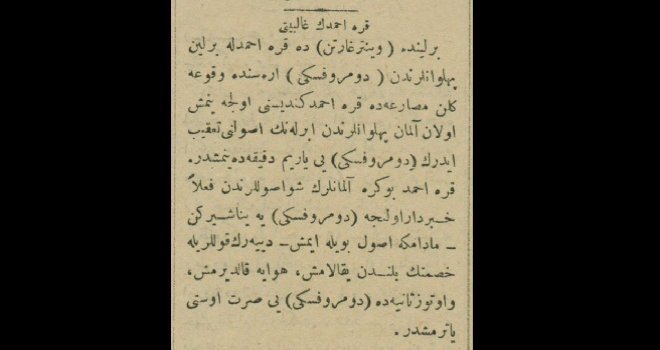 قره احمدك غالبيتى
برلينده ( وينترغارتن ) ده قره احمدله برلين
پهلوانلرندن ( دومروفسكى ) اره‌سنده وقوعه
كلن مصارعه‌ده قره احمدكنديسنى اولجه ينمش
اولان آلمان پهلوانلرندن ابرله‌نك اصولنى تعقيب
ايدرك (دومروفسكى ) يى ياريم دقيقه‌ده ينمشدر .
قره احمد بوكره آلمانلرك شواصوللرندن فعلاً
خبرداراولنجه (دومروفسكى ) يه يناشيركن
– مادامكه اصول بويله ايمش – ديه‌رك قوللريله
خصمنك بلندن يقالامش ، هوايه قالديرمش ،
واوتوزثانيه‌ده (دومروفسكى ) يى صرت اوستى
ياترمشدر .